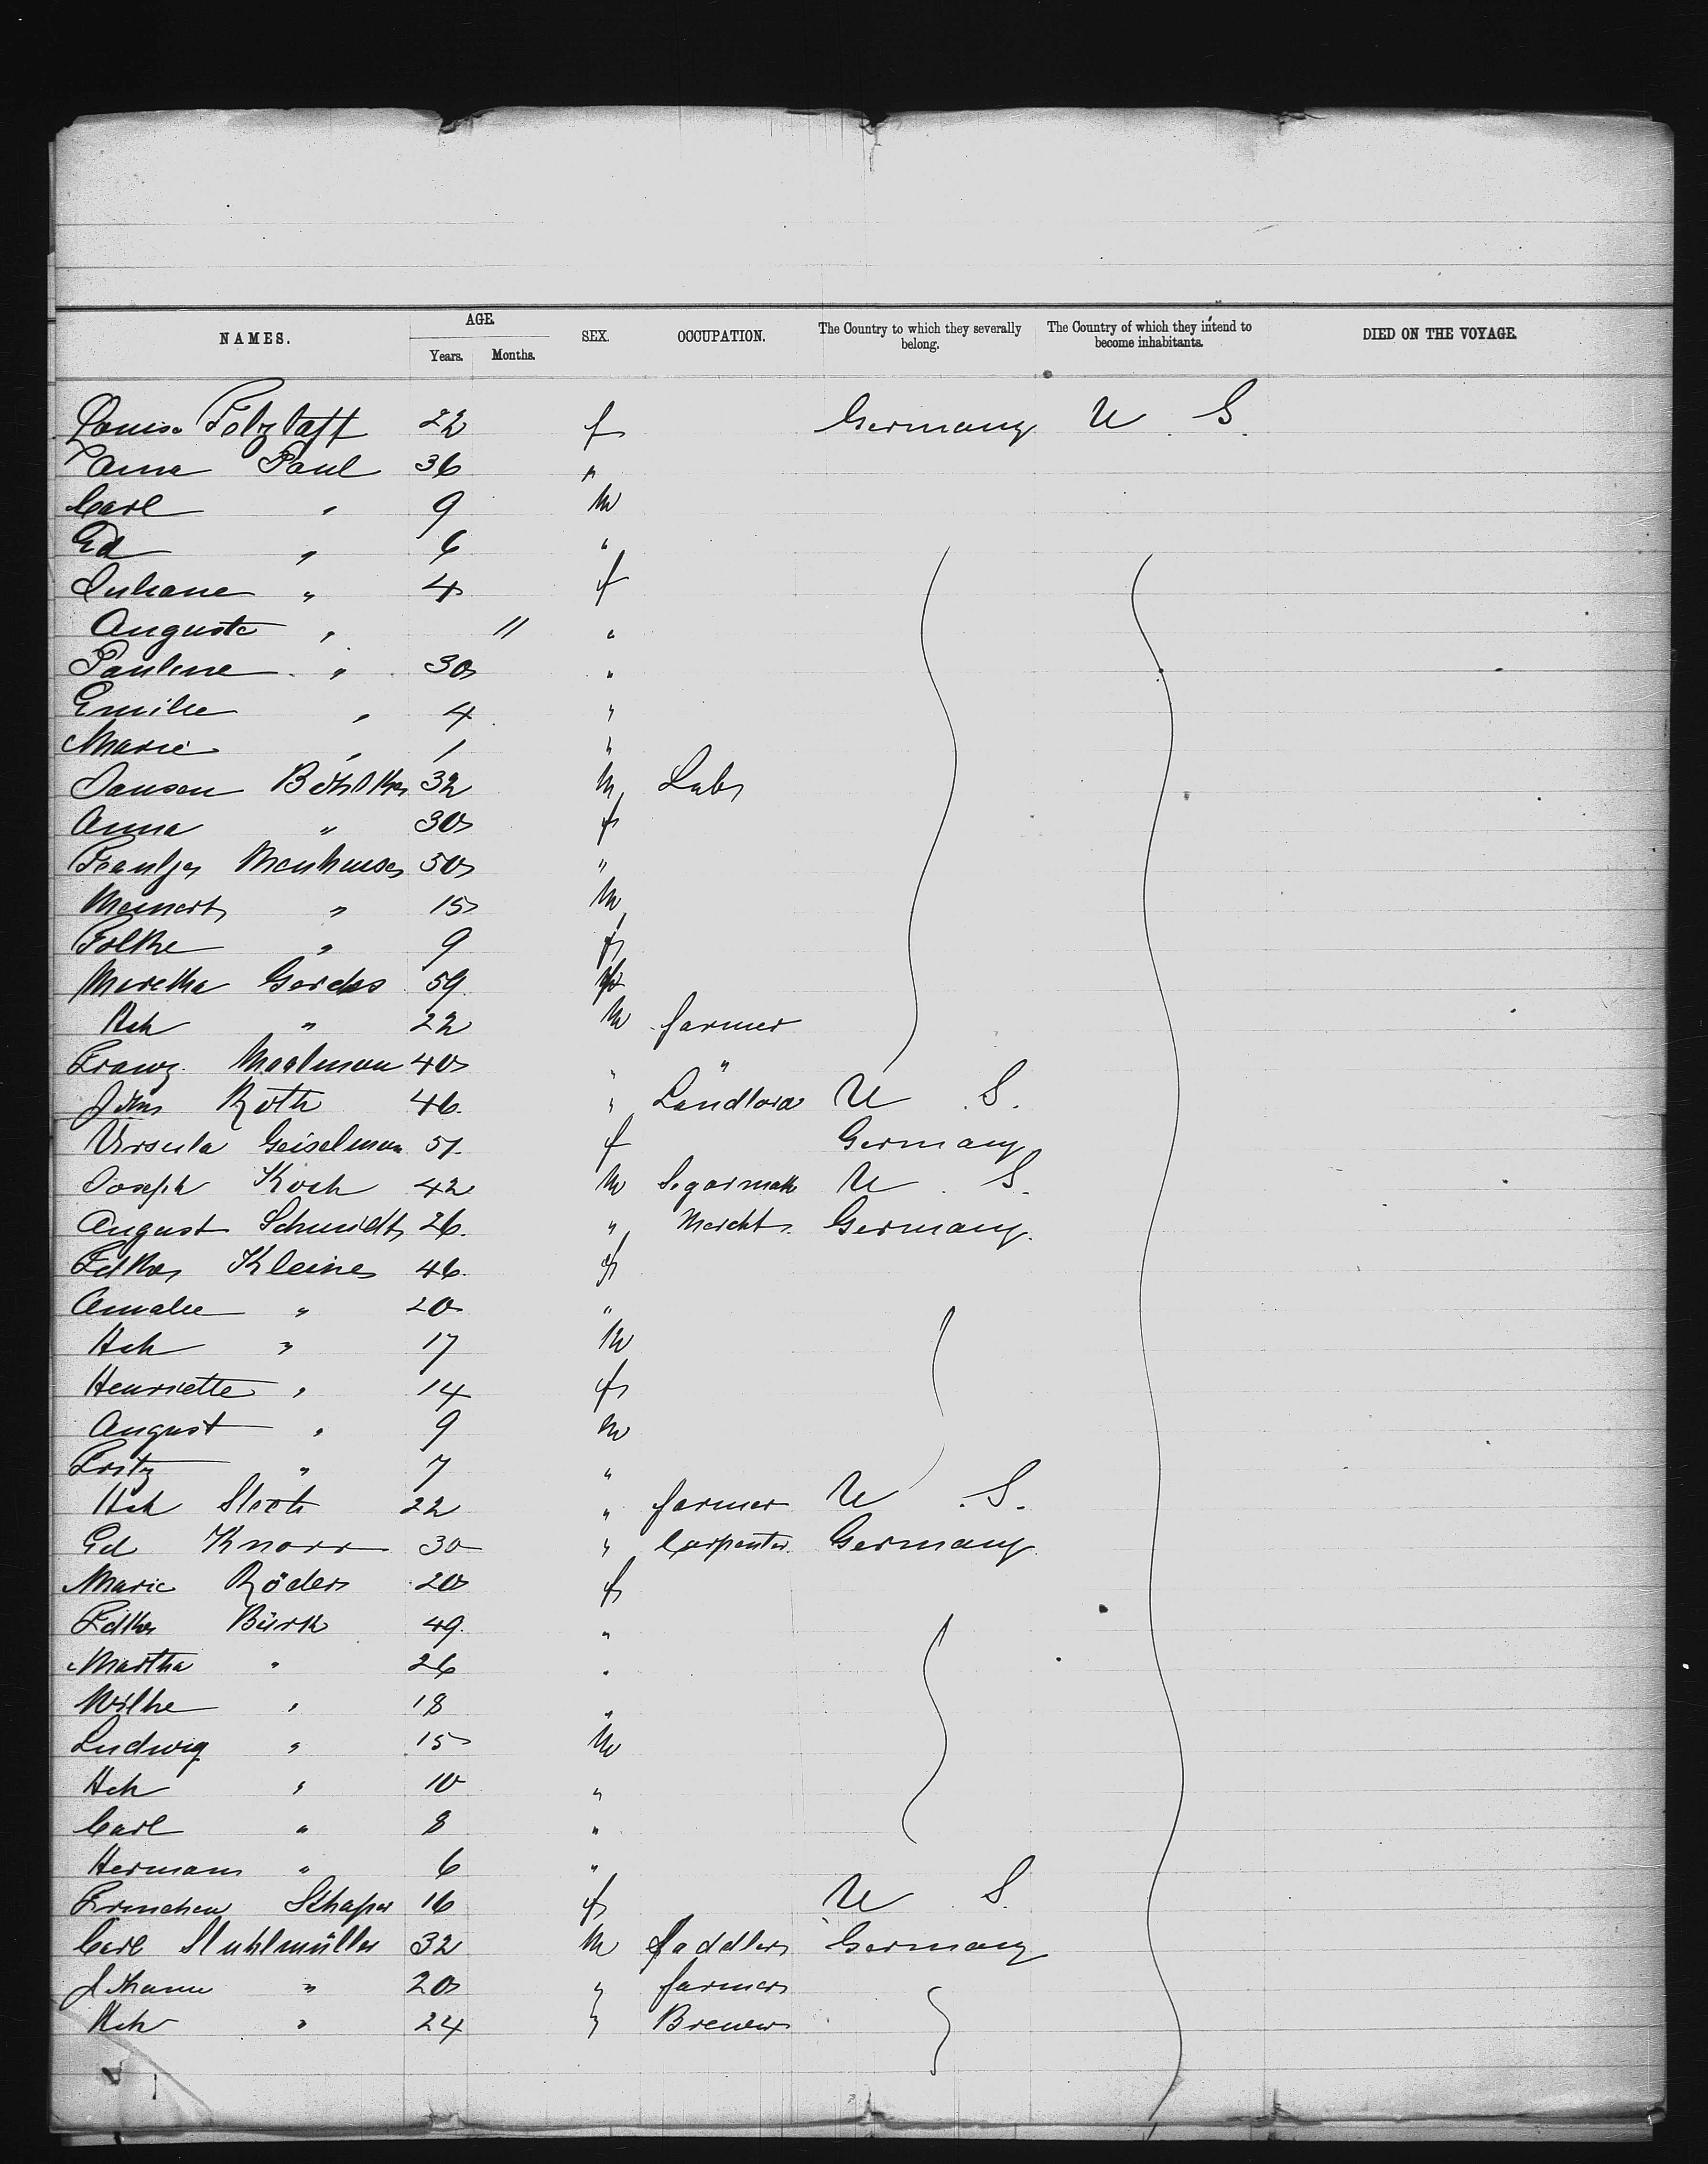 NAMES. AGE. SEX. OCCUPATION. The Country to which they severally belong. The Country of which they intend to become inhabitants. DIED ON THE VOYAGE.
Years. Months.
Louise 22 f Germany U. S.
Anna Paul 36 "
Carl " 9 m
Ed " 6 "
Juliane " 4 f
Auguste " 11 "
Pauline " 30 "
Emilie " 4 "
Marie " 1 "
Jansen 32 m Labr
Anna " 30 f
50 "
Meinert " 15 m
Folke " 9 f
Maretha Gerdes 59 f
Hch " 22 m farmer
Franz 40 " "
Johs Roth 46 " Landlord U S.
Ursula Geiselman 51 f Germany
Joseph Koch 42 m Segarmak U. S.
August Schmidt 26. " Mercht. Germany.
Kleine 46. f
Amalie " 20 "
Hch " 17 m
Henriette " 14 f
August " 9 m
Fritz " 7 "
Hch 22 " farmer U. S.
Ed Knorr 30 " Carpenter. Germany
Marie Röder 20 f
Bürk 49. "
Martha " 26 "
" 18 "
Ludwig " 15 m
Hch " 10 "
Carl " 8 "
Hermann " 6 "
Schaper 16 f U S.
Carl Stuhlmüller 32 m Saddler Germany
Johann " 20 " farmer
Hch " 24 " Brewer